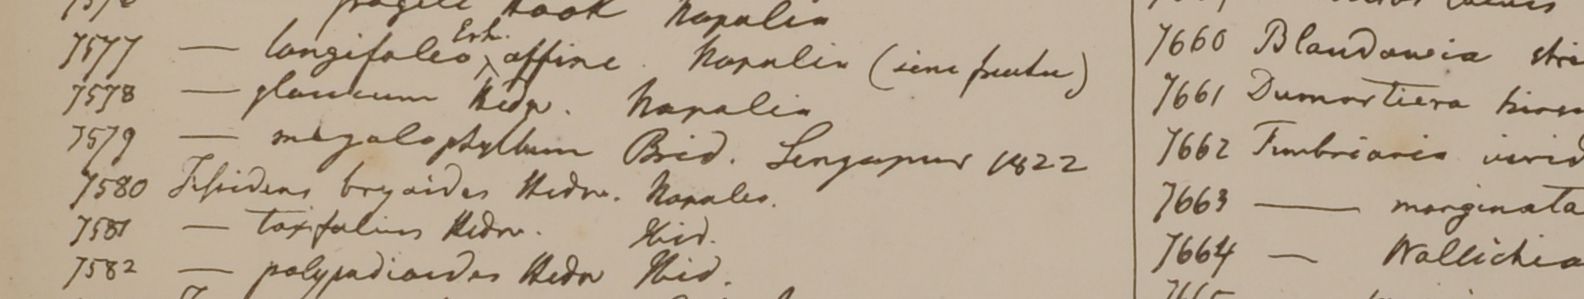 fragile Hook Napalia
7577 — longifolio Erh. affine. Napalia (sine fructu)
7578 — glaucum Hedw. Napalia
7579 — megalophyllum Brid. Singapur 1822
7580 Fissidens bryoides Hedw. Napalia.
7581 — taxifolius Hedw. Ibid.
7582 — polypodioides Hedw Ibid.
7660 Blandowia stri
7661 Dumortiera hirsu
7662 Fimbriaria virid
7663 — marginata
7664 — Wallichia
7665